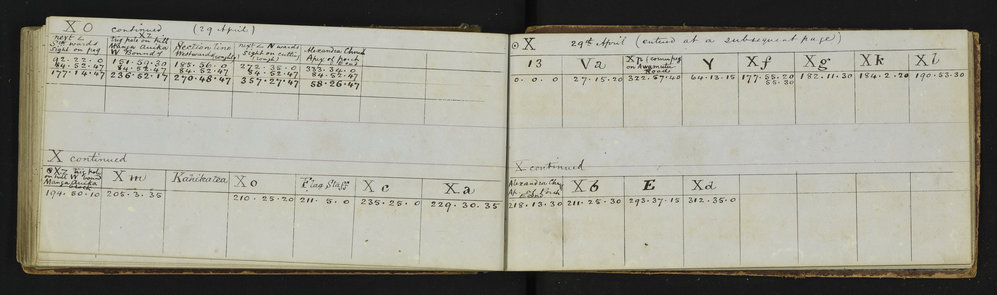 X O continued (29 April)
next L
Sth wards
Sight on peg
Trig pole on hill
Manga Auika
W Boundy
Section line
Westward roughly
next L N wards
Sight on cutting
(rough)
Alexandra Church
Apex of porch
92.22.0 151.59.30 185.56.0 272.35.0 333.34.0
84.52.47 84.52.47 84.52.47 84.52.47 84.52.47
177.14.47 236.52.17 270.48.47 357.27.47 58.26.47
X continued
Trig pole
on hill W bound
Manga Auika
X m Kahikatea X o Flag Staff X c X a
194.50.10 205.3.35 210.25.20 211.5.0 235.25.0 229.30.35
⊙ X 29th April (entered at a subsequent page)
13 V a X p (corner peg
on Awamutu
Road) Y X f X g X k X l
0.0.0 27.15.20 322.57.40 64.13.15 177.55.20 182.11.30 184.2.20 190.53.30
55.30
X continued
Alexandra Chch
Ap. of Porch
X b E X d
218.13.30 211.25.30 293.37.15 312.35.0